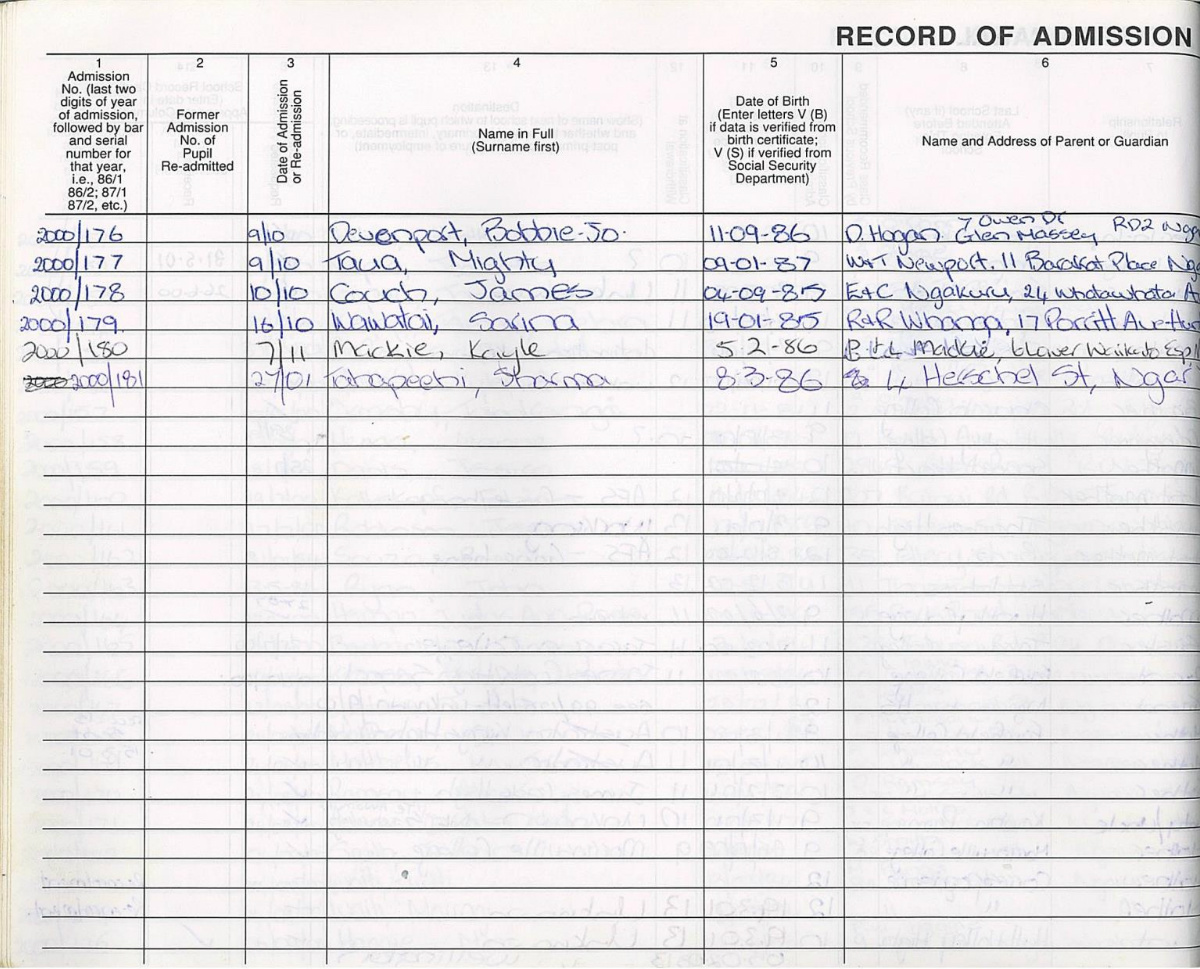 RECORD OF ADMISSION
1 2 3 4 5 6
Admission No. (last two digits of year of admission, followed by bar and serial number for that year, i.e., 86/1 86/2; 87/1 87/2, etc.)
Former Admission No. of Pupil Re-admitted
Date of Admission or Re-admission
Name in Full (Surname first)
Date of Birth (Enter letters V (B) if data is verified from birth certificate; V (S) if verified from Social Security Department)
Name and Address of Parent or Guardian
2000/176 9/10 Devenport, Bobbie-Jo. 11-09-86 D. Hogan, 7 Owen Dr Glen Massey RD2
2000/177 9/10 Taua, Mighty 09-01-87 W+T Newport, 11 Place
2000/178 10/10 Couch, James 04-09-85 E+C Ngakuru, 24
2000/179. 16/10 Wawatai, Sarina 19-01-85 R+R Whanga, 17 Porritt Ave
2000/180 7/11 Mackie, Kayle 5-2-86 Mackie,
2000/181 27/01 Sharma 8-3-86 4 Herschel St, Ngar